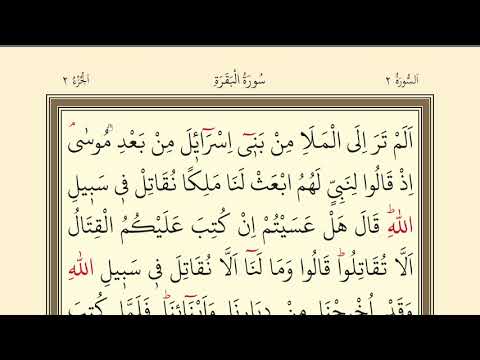 اَلسُّورَةُ ٢ سُورَةُ الْبَقَرَةِ اَلْجُزْءُ ٢
اَلَمْ تَرَ اِلَى الْمَلَاِ مِنْ بَنٖٓي اِسْرَٓائٖلَ مِنْ بَعْدِ مُوسٰىۢ
اِذْ قَالُوا لِنَبِيٍّ لَهُمُ ابْعَثْ لَنَا مَلِكًا نُقَاتِلْ فٖي سَبٖيلِ
اللّٰهِؕ قَالَ هَلْ عَسَيْتُمْ اِنْ كُتِبَ عَلَيْكُمُ الْقِتَالُ
اَلَّا تُقَاتِلُواؕ قَالُوا وَمَا لَنَٓا اَلَّا نُقَاتِلَ فٖي سَبٖيلِ اللّٰهِ
وَقَدْ اُخْرِجْنَا مِنْ دِيَارِنَا وَاَبْنَٓائِنَاؕ فَلَمَّا كُتِبَ